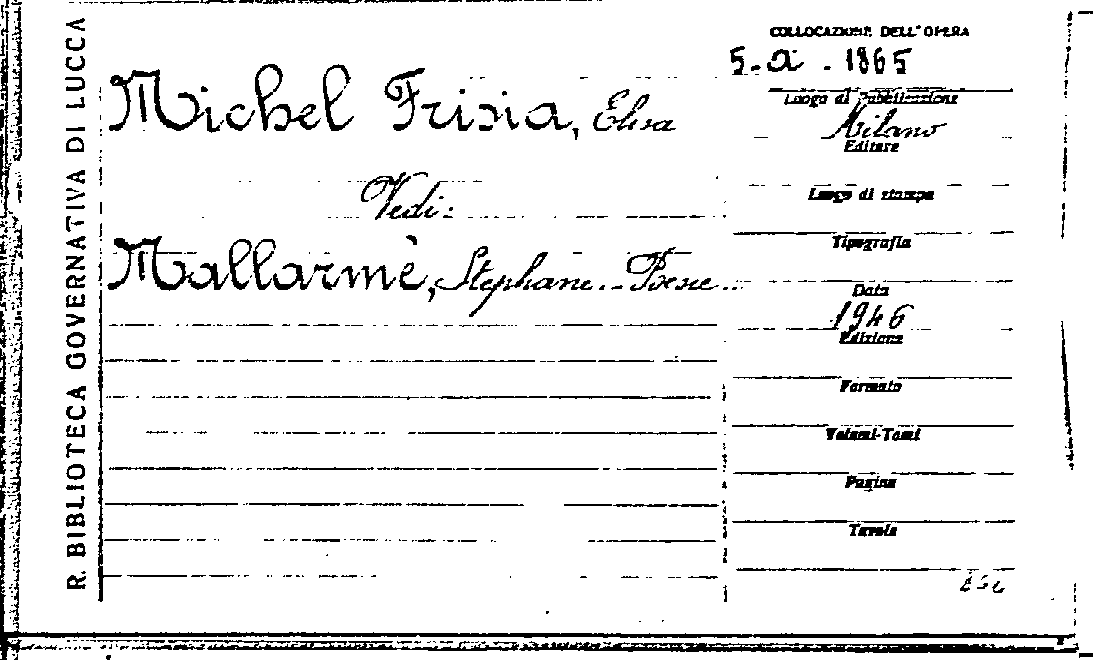 R. BIBLIOTECA GOVERNATIVA DI LUCCA
Michel Frisia, Elisa
Vedi:
Mallarmè, Stephane - Poesie
COLLOCAZIONE DELL'OPERA
5 - a - 1865
Luogo di Pubblicazione
Milano
Editore
Luogo di stampa
Tipografia
Data
1946
Edizione
Formato
Volumi-Tomi
Pagine
Tavole